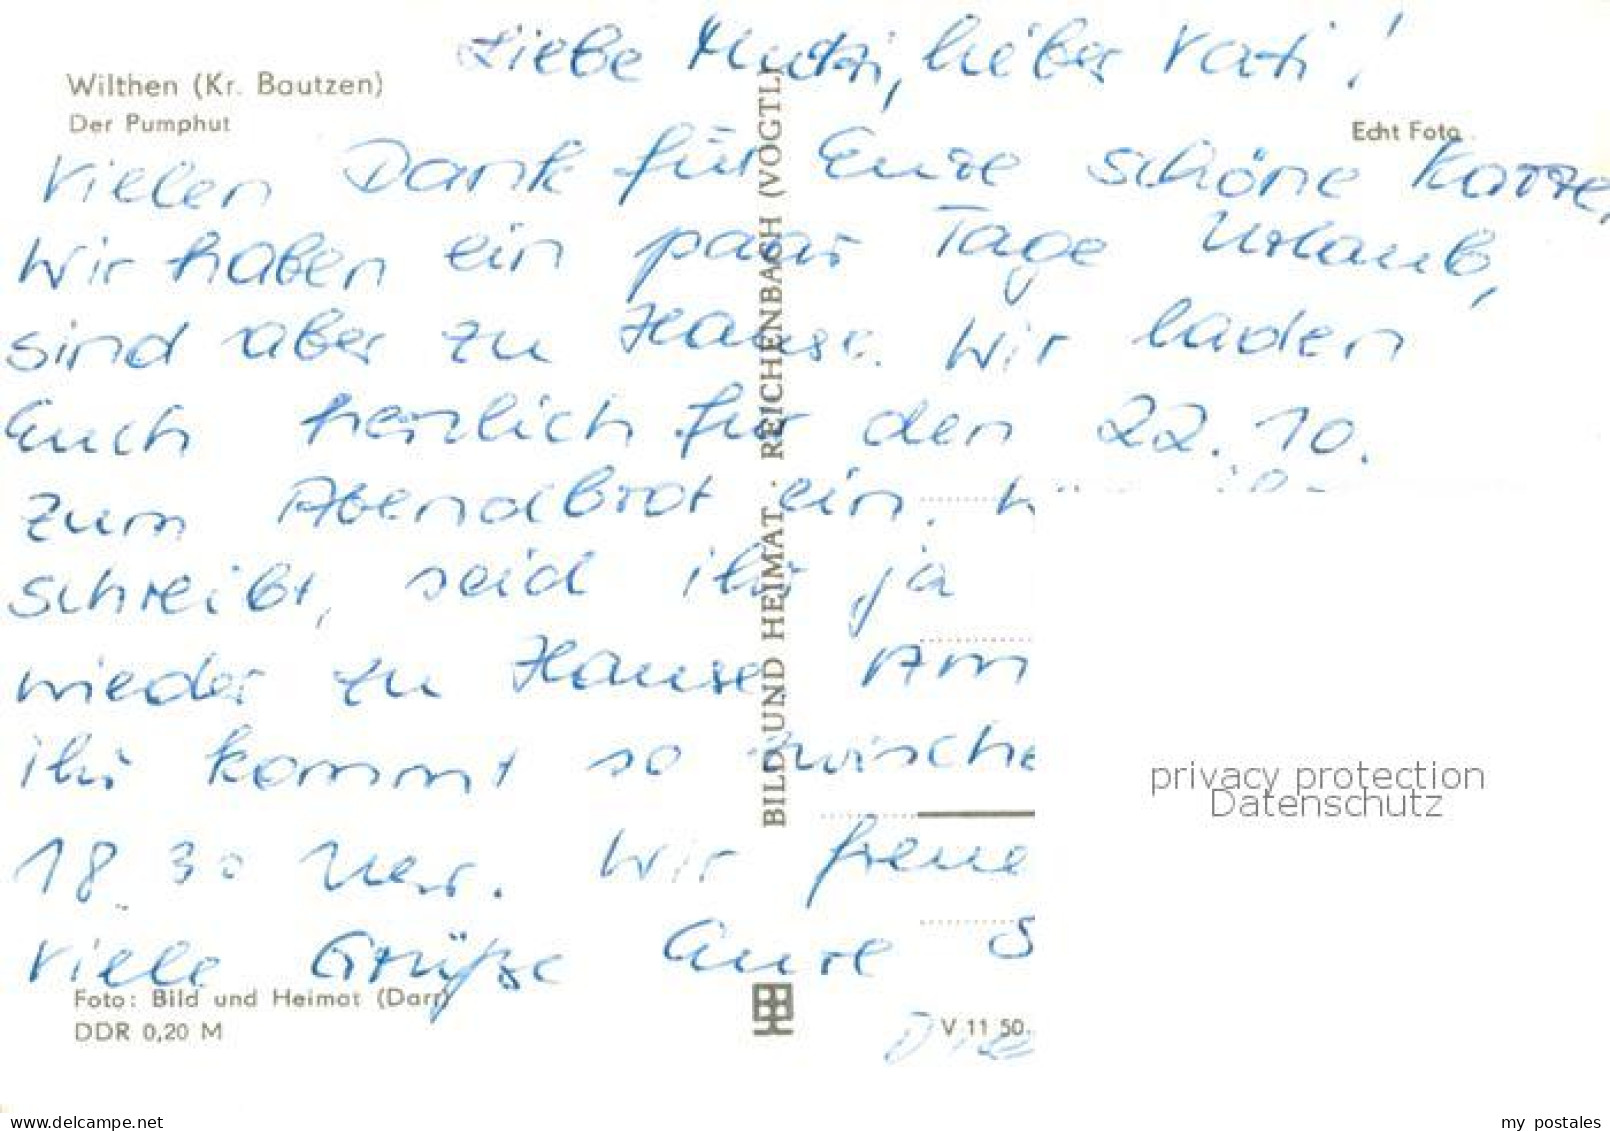 Liebe Mutti, lieber Vati!
Wilthen (Kr. Bautzen)
Der Pumphut
Echt Foto
Vielen Dank für Eure schöne Karte.
Wir haben ein paar Tage Urlaub,
sind aber zu Hause. Wir laden
Euch herzlich für den 22. 10.
zum Abendbrot ein.
schreibt, seid ihr ja
wieder zu Hause. Am
ihr kommt so zwische
18.30 Uhr. Wir freue
Viele Grüße Eure S
Foto: Bild und Heimat (Darr)
DDR 0,20 M
V 11 50.
BILD UND HEIMAT · REICHENBACH (VOGTL
privacy protection
Datenschutz
www.delcampe.net
my_postales